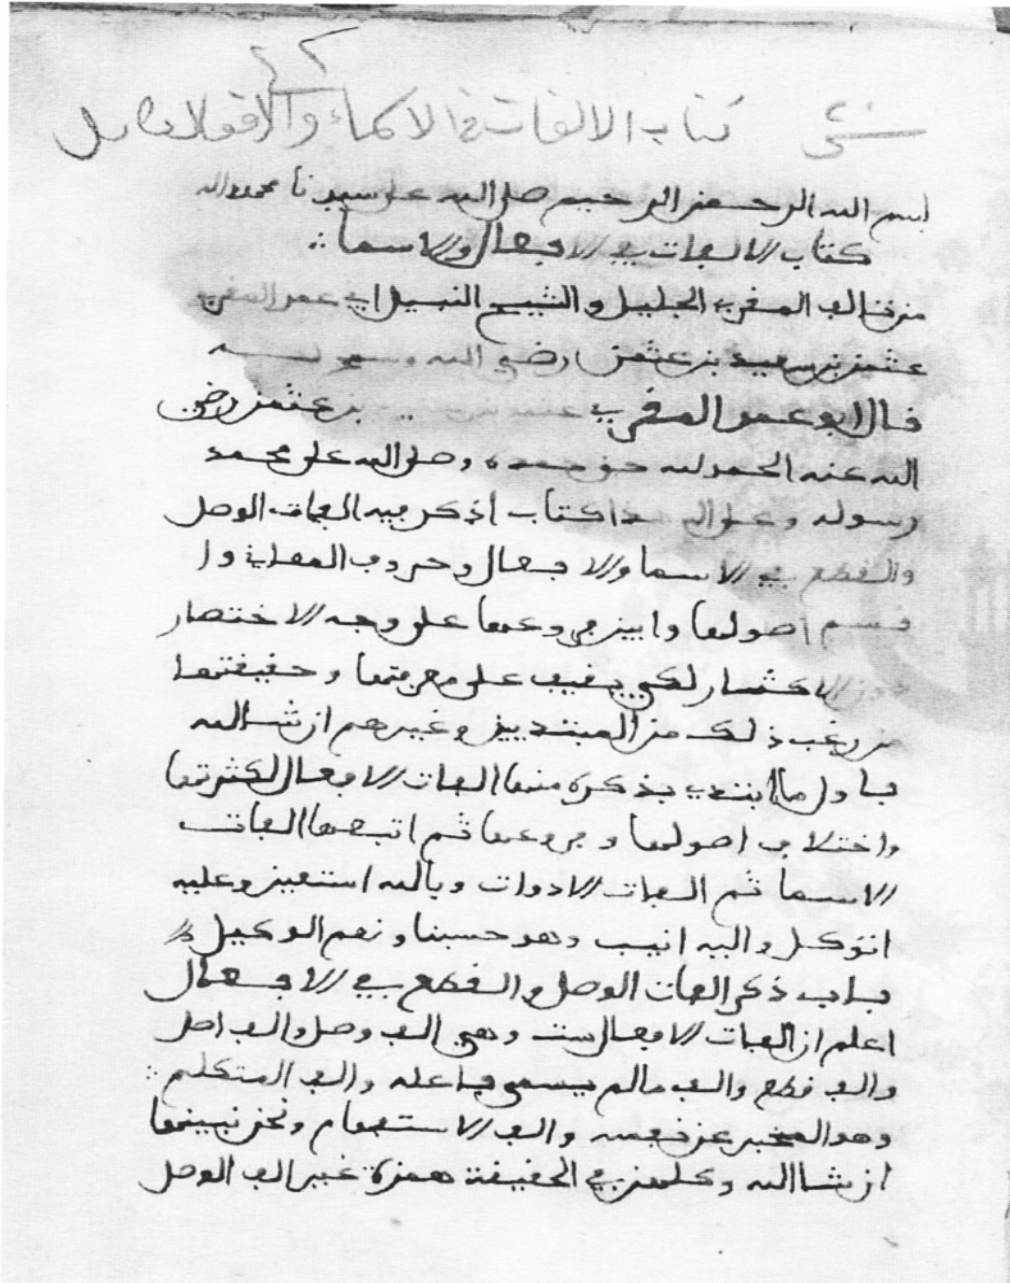 كتاب الالفات في الاسماء والافعال
بسم الله الرحمن الرحيم صلى الله على سيدنا محمد واله
كتاب الالفات في الافعال والاسما
من تاليف المقرئ الجليل والشيخ النبيل ابي عمر المقرئ
عثمن بن سعيد بن عثمن رضي الله
قال ابو عمر المقرئ عثمن بن بن عثمن رضي
الله عنه الحمد لله حق حمده وصلى الله على محمد
رسوله وعلى اله هذا كتاب اذكر فيه الفات الوصل
والقطع في الاسما والافعال وحروف المعاني وا
قسم اصولها وابين فروعها على وجه الاختصار
دون الاكثار لكي يقف على معرفتها وحقيقتها
من رغب ذلك من المبتديين وغيرهم ان شا الله
فاول ما ابتدي بذكره منها الفات الافعال لكثرتها
واختلاف اصولها وفروعها ثم اتبعها الفات
الاسما ثم الفات الادوات وبالله استعين وعليه
اتوكل واليه انيب وهو حسبنا ونعم الوكيل
باب ذكر الفات الوصل والقطع في الافعال
اعلم ان الفات الافعال ست وهي الف وصل والف اصل
والف قطع والف مالم يسمى فاعله والف المتكلم
وهو المخبر عن نفسه والف الاستفهام ونحن نبينها
ان شا الله وكلهن في الحقيقة همزة غير الف الوصل